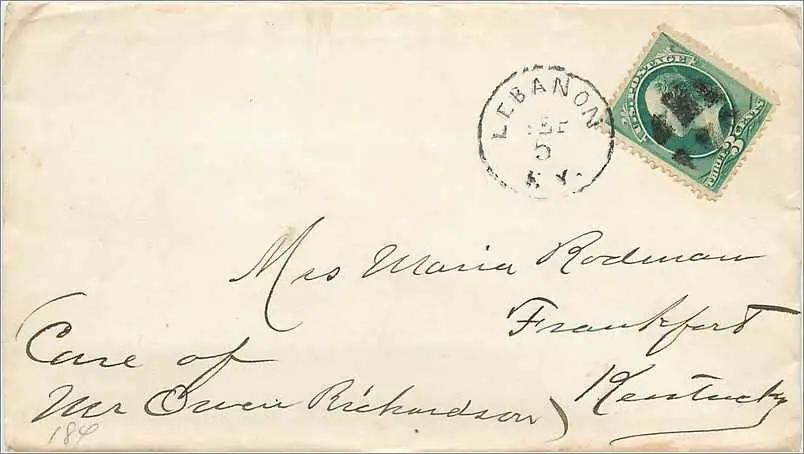 LEBANON
SEP
5
KY.
U.S. POSTAGE
THREE 3 CENTS
Mrs Maria Rodman
Frankfort
Kentucky
(Care of
Mr Owen Richardson)
184